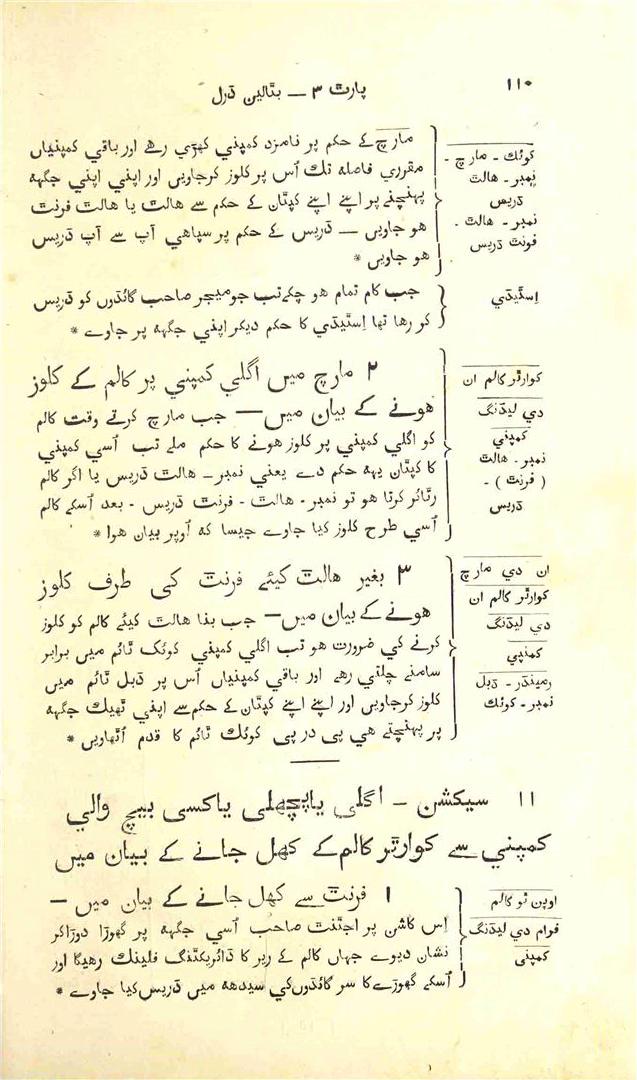 ۱۱۰
پارٹ ۳ — بٹالین ڈرل
کوئک - مارچ -
نمبر - ھالٹ
ڈریس
نمبر - ھالٹ -
فرنٹ ڈریس
مارچ کے حکم پر نامزد کمپني کھڑي رھے اور باقي کمپنیاں
مقرري فاصلہ تک اُس پر کلوز کرجاویں اور اپني اپني جگہہ
پہنچنے پر اپنے اپنے کپتان کے حکم سے ھالٹ یا ھالٹ فرنٹ
ھو جاویں — ڈریس کے حکم پر سپاھي آپ سے آپ ڈریس
ھو جاویں *
اِسٹیڈي
جب کام تمام ھو چکے تب جو میجر صاحب گائڈوں کو ڈریس
کر رھا تھا اِسٹیڈي کا حکم دیکر اپني جگہہ پر جاوے *
کوارٹر کالم ان
دي لیڈنگ
کمپني
نمبر - ھالٹ
( فرنٹ ) -
ڈریس
۲ مارچ میں اگلي کمپني پر کالم کے کلوز
ھونے کے بیان میں — جب مارچ کرتے وقت کالم
کو اگلي کمپني پر کلوز ھونے کا حکم ملے تب اُسي کمپني
کا کپتان یہہ حکم دے یعني نمبر - ھالٹ ڈریس یا اگر کالم
رٹائر کرتا ھو تو نمبر - ھالٹ - فرنٹ ڈریس - بعد اُسکے کالم
اُسي طرح کلوز کیا جاوے جیسا کہ اُوپر بیان ھوا *
ان دي مارچ
کوارٹر کالم ان
دي لیڈنگ
کمپني
رمینڈر - ڈبل
نمبر - کوئک
۳ بغیر ھالٹ کیئے فرنٹ کی طرف کلوز
ھونے کے بیان میں — جب بنا ھالٹ کیئے کالم کو کلوز
کرنے کي ضرورت ھو تب اگلي کمپني کوئک ٹائم میں برابر
سامنے چلتي رھے اور باقي کمپنیاں اُس پر ڈبل ٹائم میں
کلوز کرجاویں اور اپنے اپنے کپتان کے حکم سے اپني ٹھیک جگہہ
پر پہنچتے ھي پی در پی کوئک ٹائم کا قدم اُٹھاویں *
۱۱ سیکشن - اگلی یا پچھلی یا کسی بیچ والي
کمپني سے کوارٹر کالم کے کھل جانے کے بیان میں
اوپن ٹو کالم
فرام دي لیڈنگ
کمپنی
۱ فرنٹ سے کھل جانے کے بیان میں —
اِس کاشن پر اجٹنٹ صاحب اُسي جگہہ پر گھوڑا دوڑا کر
نشان دیوے جہاں کالم کے ریر کا ڈائریکٹنگ فلینک رھیگا اور
اُسکے گھوڑے کا سر گائڈوں کي سیدھہ میں ڈریس کیا جاوے *